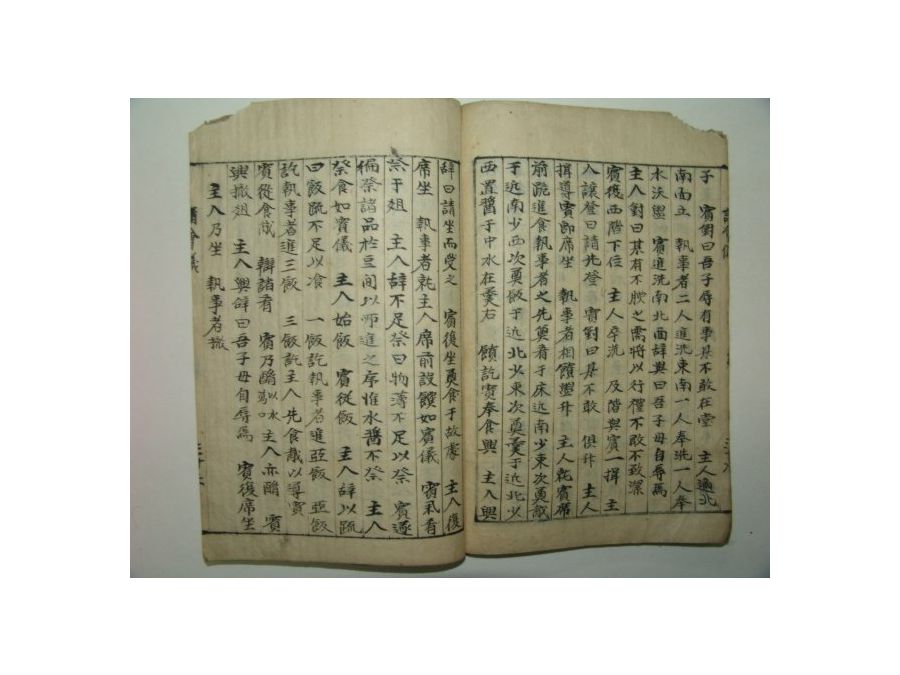 子 賓對曰吾子辱有事某不敢在堂 主人適北
南面立 執事者二人進洗東南一人奉洗一人奉
水沃盥 賓進洗南北面辭興曰吾子母自辱焉
主人對曰某有不腆之需將以行禮不敢不致潔
賓復西階下位 主人卒洗 及階與賓一揖 主
人讓登曰請先登 賓對曰某不敢 俱升 主人
揖導賓即席坐 執事者相饋盥升 主人就賓席
前跪進食執事者之先奠肴于床近南少東次奠胾
于近南少西次奠飯于近北少東次奠羹于近北少
西置醬于中水在羹右 饋訖賓奉食興 主人興
辞曰請坐而受之 賓復坐奠食于故處 主人復
席坐 執事者就主人席前設饌如賓儀 賓
祭于俎 主人辞不足祭曰物薄不足以祭 賓遂
徧祭諸品於豆間以所進之序惟水醬不祭 主人
祭食如賓儀 主人始飯 賓從飯 主人辞以疏
曰飯疏不足以飡 一飯訖執事者進亞飯 亞飯
訖執事者進三飯 三飯訖主人先食胾以導賓
賓從食胾 辯諸肴 賓乃酳以水 主人亦酳 賓
興撤俎 主人興辞曰吾子母自辱焉 賓復席坐
主人乃坐 執事者撤
會儀